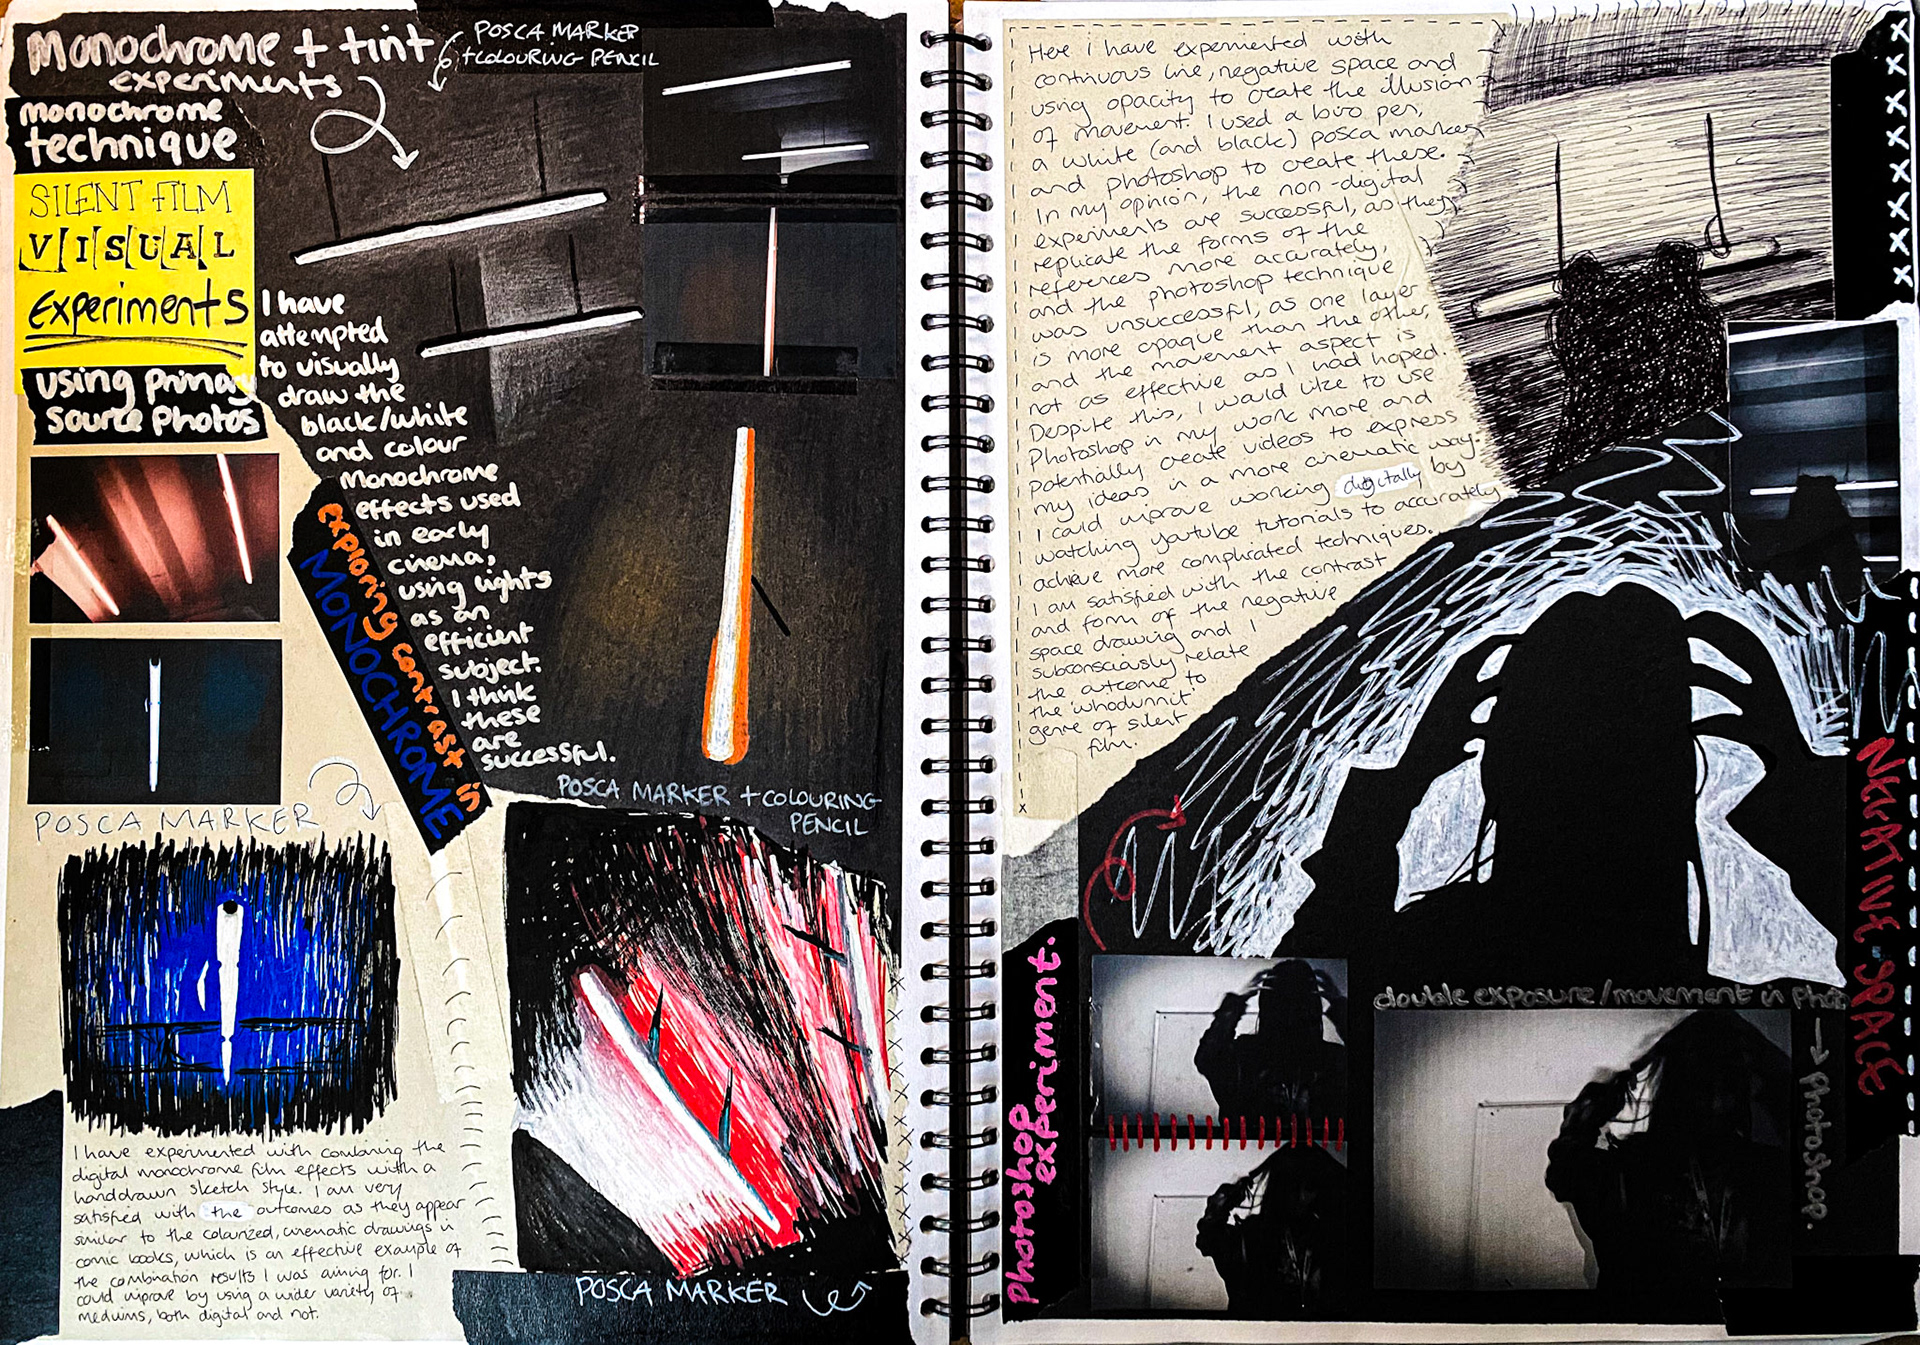 Monochrome + tint
experiments
POSCA MARKER
+COLOURING PENCIL
monochrome
technique
SILENT FILM
VISUAL
Experiments
using primary
source photos
I have
attempted
to visually
draw the
black/white
and colour
Monochrome
effects used
in early
cinema,
using lights
as an
efficient
subject.
I think
these
are
successful.
exploring contrast in
MONOCHROME
POSCA MARKER + COLOURING
PENCIL
POSCA MARKER
I have experimented with combining the
digital monochrome film effects with a
handdrawn sketch style. I am very
satisfied with the outcomes as they appear
similar to the colourized, cinematic drawings in
comic books, which is an effective example of
the combination results I was aiming for. I
could improve by using a wider variety of
mediums, both digital and not.
POSCA MARKER
Here i have experimented with
continuous line, negative space and
using opacity to create the illusion
of movement. I used a biro pen,
a white (and black) posca marker
and photoshop to create these.
In my opinion, the non-digital
experiments are successful, as they
replicate the forms of the
references more accurately,
and the photoshop technique
was unsuccessful, as one layer
is more opaque than the other,
and the movement aspect is
not as effective as I had hoped.
Despite this, I would like to use
Photoshop in my work more and
potentially create videos to express
my ideas in a more cinematic way.
I could improve working digitally by
watching youtube tutorials to accurately
achieve more complicated techniques.
I am satisfied with the contrast
and form of the negative
space drawing and I
subconsciously relate
the outcome to
the 'whodunnit'
genre of silent
film.
NEGATIVE-SPACE
Photoshop
experiment.
double exposure/movement in photo
→ Photoshop.